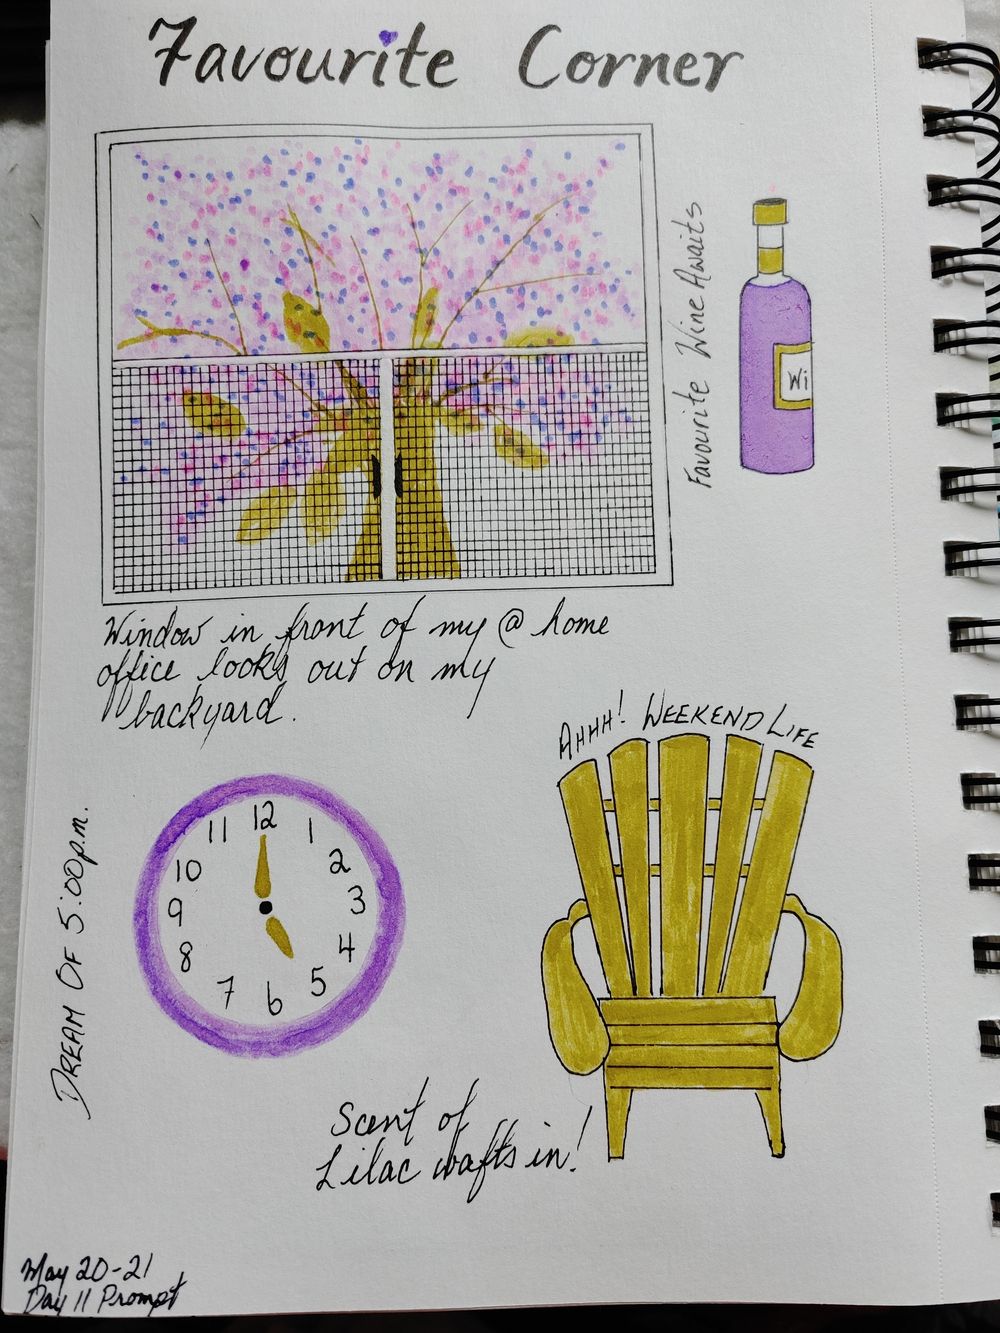 Favourite Corner
Favourite Wine Awaits
Wi
Window in front of my @ home
office looks out on my
backyard.
AHHH! WEEKEND LIFE
DREAM OF 5:00p.m.
12
1
2
3
4
5
6
7
8
9
10
11
Scent of
Lilac wafts in!
May 20-21
Day 11 Prompt